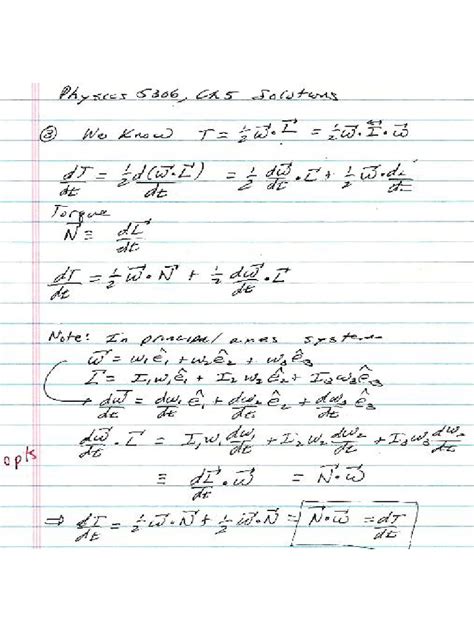 Physics 5306, Ch5 Solutions
③ We Know T = ½ω⃗·L⃗ = ½ω⃗·I⃡·ω⃗
dT/dt = ½ d(ω⃗·L⃗)/dt = ½ dω⃗/dt · L⃗ + ½ ω⃗ · dL⃗/dt
Torque
N⃗ ≡ dL⃗/dt
dT/dt = ½ω⃗·N⃗ + ½ dω⃗/dt · L⃗
Note: In principal axes system
ω⃗ = ω₁ê₁ + ω₂ê₂ + ω₃ê₃
L⃗ = I₁ω₁ê₁ + I₂ω₂ê₂ + I₃ω₃ê₃
dω⃗/dt = dω₁/dt ê₁ + dω₂/dt ê₂ + dω₃/dt ê₃
dω⃗/dt · L⃗ = I₁ω₁ dω₁/dt + I₂ω₂ dω₂/dt + I₃ω₃ dω₃/dt
opts
≡ dL⃗/dt · ω⃗ = N⃗·ω⃗
⇒ dT/dt = ½ω⃗·N⃗ + ½ω⃗·N⃗ = N⃗·ω⃗ = dT/dt